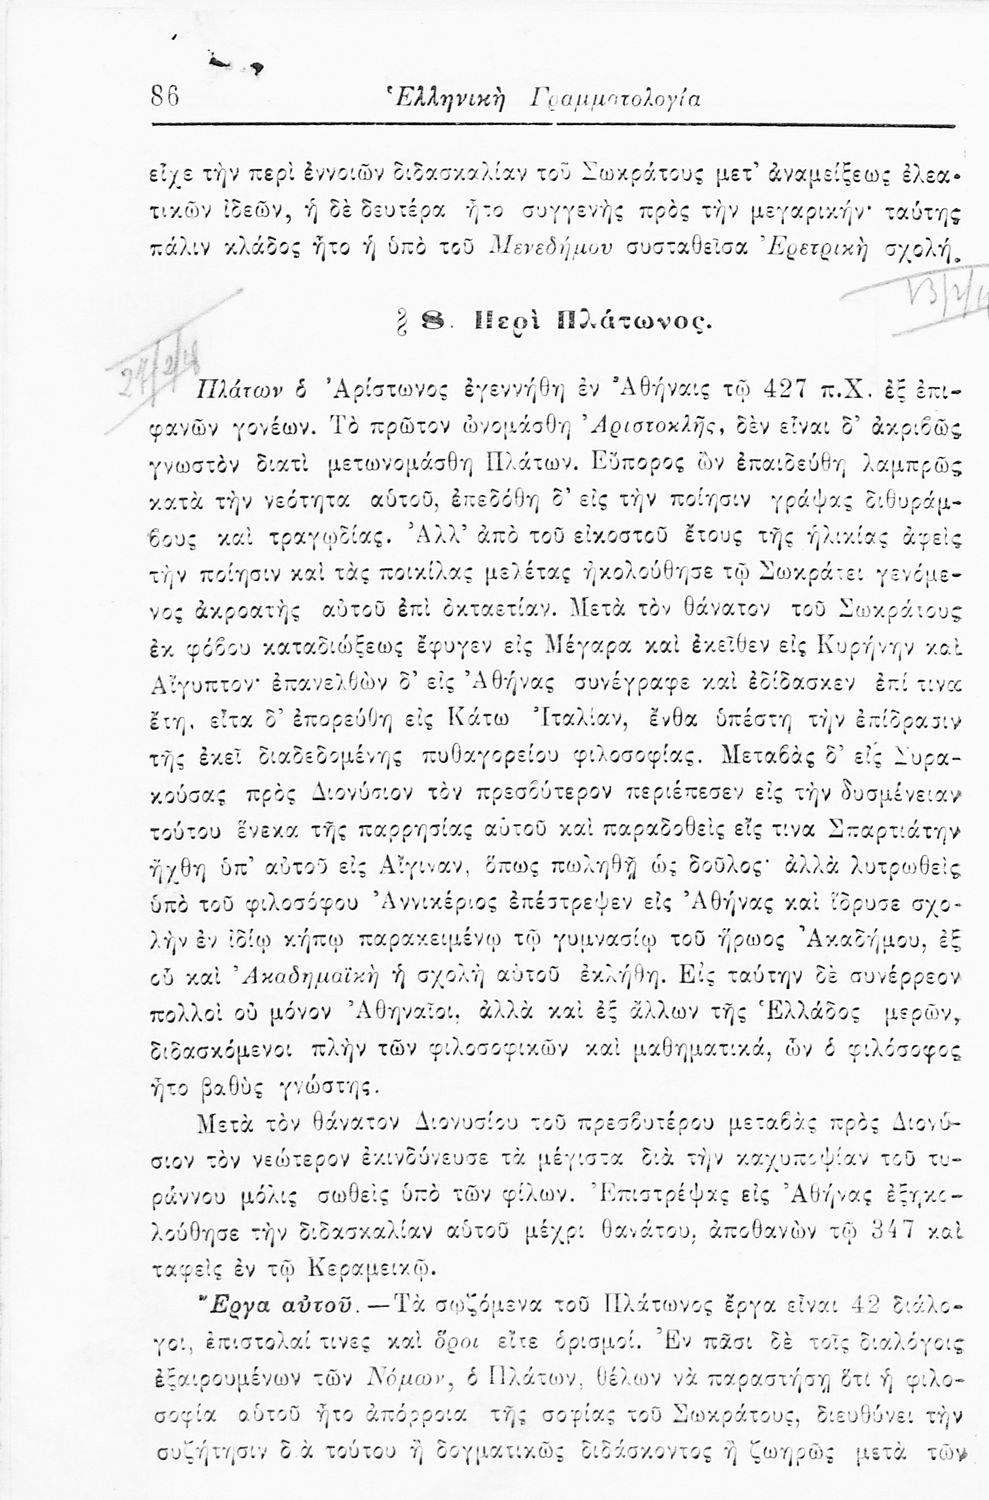 86 Ἑλληνικὴ Γραμματολογία
εἶχε τὴν περὶ ἐννοιῶν διδασκαλίαν τοῦ Σωκράτους μετ’ ἀναμείξεως ἐλεα-
τικῶν ἰδεῶν, ἡ δὲ δευτέρα ἦτο συγγενὴς πρὸς τὴν μεγαρικήν· ταύτης
πάλιν κλάδος ἦτο ἡ ὑπὸ τοῦ Μενεδήμου συσταθεῖσα Ἐρετρικὴ σχολή.
13/2/
§ 8. Περὶ Πλάτωνος.
27/2/48
Πλάτων ὁ Ἀρίστωνος ἐγεννήθη ἐν Ἀθήναις τῷ 427 π.Χ. ἐξ ἐπι-
φανῶν γονέων. Τὸ πρῶτον ὠνομάσθη Ἀριστοκλῆς, δὲν εἶναι δ’ ἀκριβῶς
γνωστὸν διατὶ μετωνομάσθη Πλάτων. Εὔπορος ὢν ἐπαιδεύθη λαμπρῶς
κατὰ τὴν νεότητα αὑτοῦ, ἐπεδόθη δ’ εἰς τὴν ποίησιν γράψας διθυράμ-
βους καὶ τραγῳδίας. Ἀλλ’ ἀπὸ τοῦ εἰκοστοῦ ἔτους τῆς ἡλικίας ἀφεὶς
τὴν ποίησιν καὶ τὰς ποικίλας μελέτας ἠκολούθησε τῷ Σωκράτει γενόμε-
νος ἀκροατὴς αὐτοῦ ἐπὶ ὀκταετίαν. Μετὰ τὸν θάνατον τοῦ Σωκράτους
ἐκ φόβου καταδιώξεως ἔφυγεν εἰς Μέγαρα καὶ ἐκεῖθεν εἰς Κυρήνην καὶ
Αἴγυπτον· ἐπανελθὼν δ’ εἰς Ἀθήνας συνέγραφε καὶ ἐδίδασκεν ἐπί τινα
ἔτη, εἶτα δ’ ἐπορεύθη εἰς Κάτω Ἰταλίαν, ἔνθα ὑπέστη τὴν ἐπίδρασιν
τῆς ἐκεῖ διαδεδομένης πυθαγορείου φιλοσοφίας. Μεταβὰς δ’ εἰς Συρα-
κούσας πρὸς Διονύσιον τὸν πρεσβύτερον περιέπεσεν εἰς τὴν δυσμένειαν
τούτου ἕνεκα τῆς παρρησίας αὑτοῦ καὶ παραδοθεὶς εἴς τινα Σπαρτιάτην
ἤχθη ὑπ’ αὐτοῦ εἰς Αἴγιναν, ὅπως πωληθῇ ὡς δοῦλος· ἀλλὰ λυτρωθεὶς
ὑπὸ τοῦ φιλοσόφου Ἀννικέριος ἐπέστρεψεν εἰς Ἀθήνας καὶ ἵδρυσε σχο-
λὴν ἐν ἰδίῳ κήπῳ παρακειμένῳ τῷ γυμνασίῳ τοῦ ἥρωος Ἀκαδήμου, ἐξ
οὗ καὶ Ἀκαδημαϊκὴ ἡ σχολὴ αὑτοῦ ἐκλήθη. Εἰς ταύτην δὲ συνέρρεον
πολλοὶ οὐ μόνον Ἀθηναῖοι, ἀλλὰ καὶ ἐξ ἄλλων τῆς Ἑλλάδος μερῶν,
διδασκόμενοι πλὴν τῶν φιλοσοφικῶν καὶ μαθηματικά, ὧν ὁ φιλόσοφος
ἦτο βαθὺς γνώστης.
Μετὰ τὸν θάνατον Διονυσίου τοῦ πρεσβυτέρου μεταβὰς πρὸς Διονύ-
σιον τὸν νεώτερον ἐκινδύνευσε τὰ μέγιστα διὰ τὴν καχυποψίαν τοῦ τυ-
ράννου μόλις σωθεὶς ὑπὸ τῶν φίλων. Ἐπιστρέψας εἰς Ἀθήνας ἐξηκο-
λούθησε τὴν διδασκαλίαν αὑτοῦ μέχρι θανάτου, ἀποθανὼν τῷ 347 καὶ
ταφεὶς ἐν τῷ Κεραμεικῷ.
Ἔργα αὐτοῦ.—Τὰ σῳζόμενα τοῦ Πλάτωνος ἔργα εἶναι 42 διάλο-
γοι, ἐπιστολαί τινες καὶ ὅροι εἴτε ὁρισμοί. Ἐν πᾶσι δὲ τοῖς διαλόγοις
ἐξαιρουμένων τῶν Νόμων, ὁ Πλάτων, θέλων νὰ παραστήσῃ ὅτι ἡ φιλο-
σοφία αὑτοῦ ἦτο ἀπόρροια τῆς σοφίας τοῦ Σωκράτους, διευθύνει τὴν
συζήτησιν διὰ τούτου ἢ δογματικῶς διδάσκοντος ἢ ζωηρῶς μετὰ τῶν